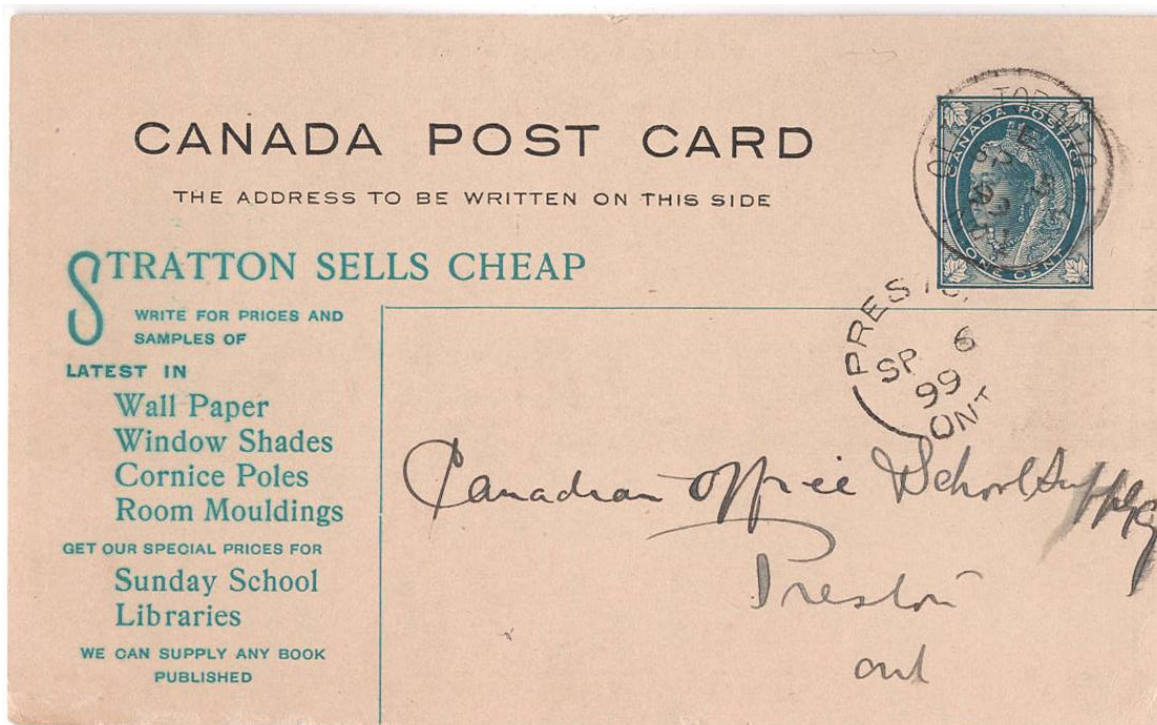 CANADA POST CARD
THE ADDRESS TO BE WRITTEN ON THIS SIDE
CANADA POSTAGE
ONE CENT
STRATTON SELLS CHEAP
WRITE FOR PRICES AND
SAMPLES OF
LATEST IN
Wall Paper
Window Shades
Cornice Poles
Room Mouldings
GET OUR SPECIAL PRICES FOR
Sunday School
Libraries
WE CAN SUPPLY ANY BOOK
PUBLISHED
SP 6
99
ONT
Canadian Office School Supply
Preston
Ont